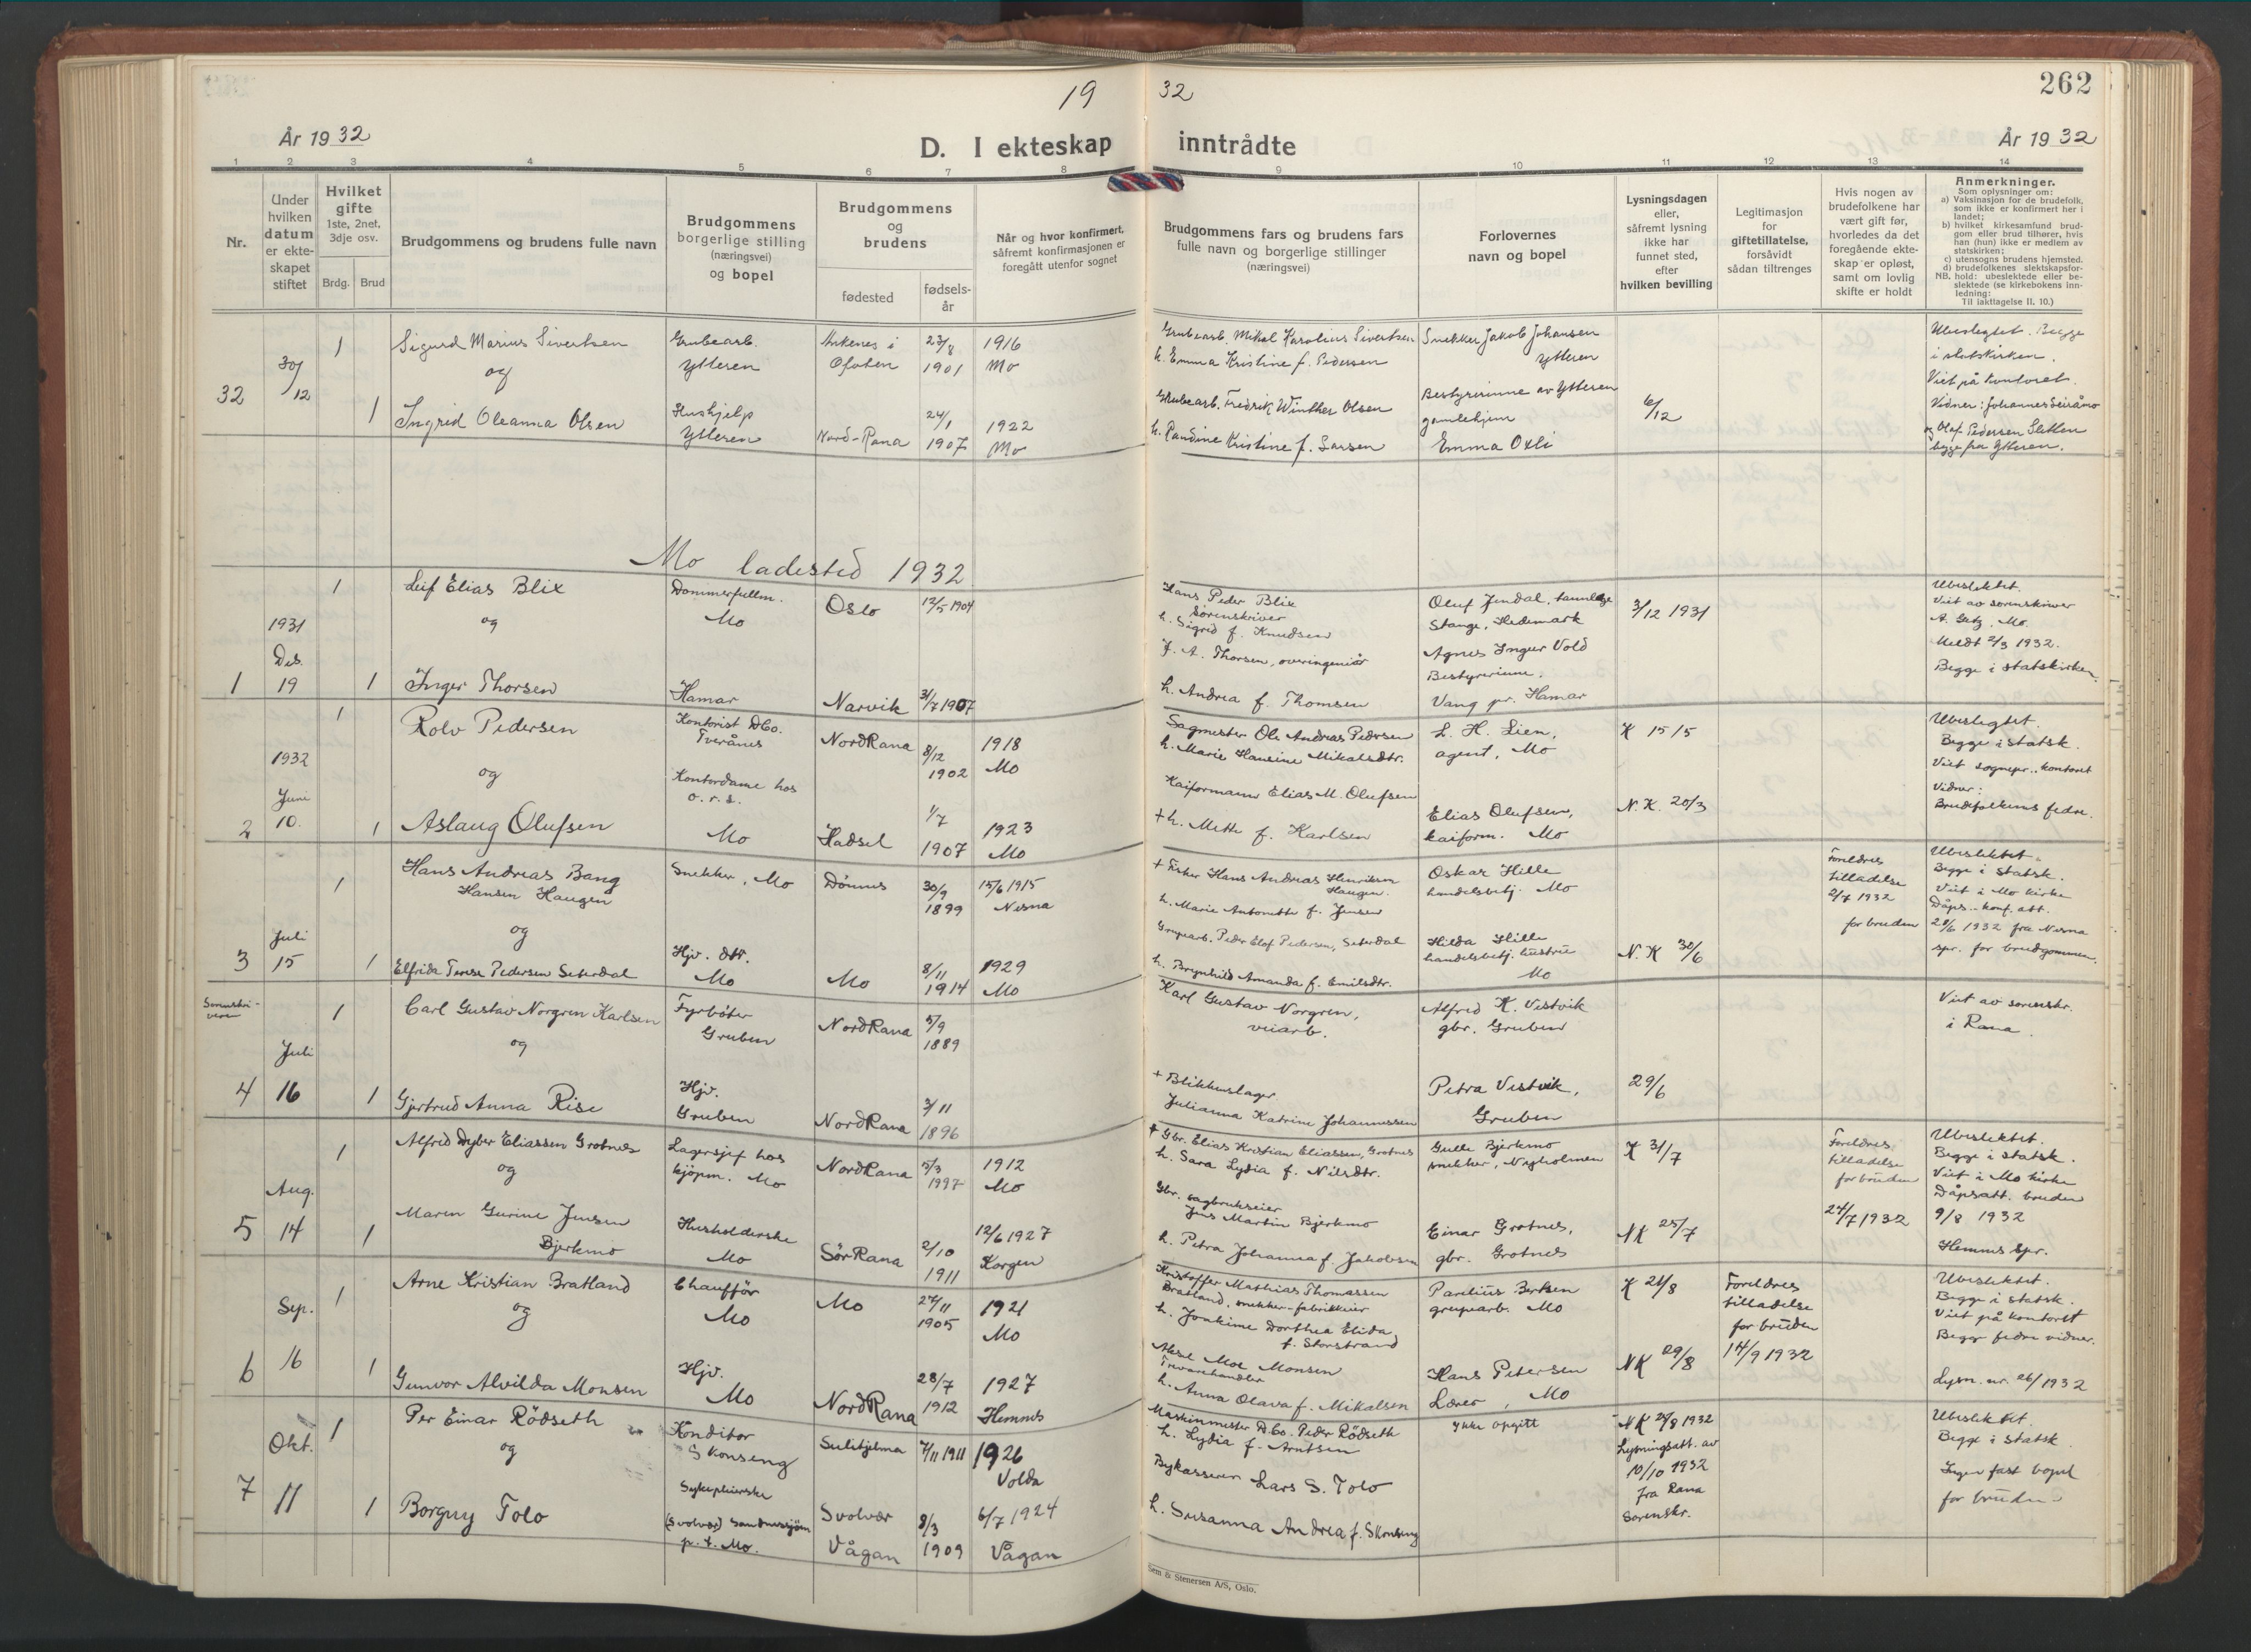 19 32
262
År 1932
D. I ekteskap inntrådte
År 1932
1 2 3 4 5 6 7 8 9 10 11 12 13 14
Nr.
Under hvilken datum er ekteskapet stiftet
Hvilket gifte 1ste, 2net, 3dje osv.
Brdg. Brud
Brudgommens og brudens fulle navn
Brudgommens borgerlige stilling (næringsvei) og bopel
Brudgommens og brudens
fødested
fødselsår
Når og hvor konfirmert, såfremt konfirmasjonen er foregått utenfor sognet
Brudgommens fars og brudens fars fulle navn og borgerlige stillinger (næringsvei)
Forlovernes navn og bopel
Lysningsdagen eller, såfremt lysning ikke har funnet sted, efter hvilken bevilling
Legitimasjon for giftetillatelse, forsåvidt sådan tiltrenges
Hvis nogen av brudefolkene har vært gift før, hvorledes da det foregående ekteskap er opløst, samt om lovlig skifte er holdt
Anmerkninger.
Som oplysninger om:
a) Vaksinasjon for de brudefolk, som ikke er konfirmert her i landet;
b) hvilket kirkesamfund brudgom eller brud tilhører, hvis han (hun) ikke er medlem av statskirken;
c) utensogns brudens hjemsted.
d) brudefolkenes slektskapsforhold: ubeslektede eller beslektede (se kirkebokens innledning:
NB. Til iakttagelse II. 10.)
32
30/12
1
Sigurd Marius Sivertsen
og
1
Ingrid Oleanna Olsen
Grubearb.
Ytteren
Hushjelp
Ytteren
Ankenes i
Ofoten
Nord-Rana
23/8
1901
24/1
1907
1916
Mo
1922
Mo
Grubearb. Mikal Karolius Sivertsen
h. Emma Kristine f. Pedersen
Grubearb. Fredrik Winther Olsen
h. Paudine Kristine f. Larsen
Snekker Jakob Johansen
Ytteren
Bestyrerinne av Ytteren
gamlehjem
Emma Oxli
6/12
Ubeslegtet. Begge
i statskirken.
Viet på kontoret.
Vidner: Johannes Seiråmo
og Olaf Pedersen Sletten
begge fra Ytteren.
Mo ladested 1932
1
1931
Des.
19
1
Leif Elias Blix
og
1
Inger Thorsen
Dommerfullm.
Mo
Hamar
Oslo
Narvik
12/5 1904
31/7 1907
Hans Peder Blix
Sorenskriver
h. Sigrid f. Knudsen
F. A. Thorsen, overingeniør
h. Andrea f. Thomsen
Oluf Jendal, tannlæge
Stange, Hedemark
Agnes Ingur Vold
Bestyrerinne.
Vang pr. Hamar
3/12 1931
Ubeslektet.
Viet av sorenskriver
A. Getz, Mo.
Meldt 2/3 1932.
Begge i statskirken.
2
1932
Juni
10.
1
Rolv Pedersen
og
1
Aslaug Olufsen
Kontorist D Co.
Tverånes
Kontordame hos
o.r.s.
Mo
NordRana
Hadsel
8/12
1902
1/7
1907
1918
Mo
1923
Mo
Sagmester Ole Andreas Pedersen
h. Marie Hansine Mikalsdtr.
Kaiformann Elias M. Olufsen
+ h. Mette f. Karlsen
L. H. Lien,
agent, Mo
Elias Olufsen,
kaiform. Mo
K 15/5
N.K. 20/3
Ubeslegtet.
Begge i statsk.
Viet sognepr. kontoret
Vidner:
Brudefolkenes fedre.
3
Juli
15
1
Hans Andreas Bang
Hansen Haugen
og
1
Elfrida Terese Pedersen Seterdal
Snekker, Mo
Hjv. dtr.
Mo
Dønnes
Mo
30/9
1899
8/11
1914
15/6 1915
Nesna
1929
Mo
+ Fisker Hans Andreas Henriksen
Haugen.
h. Marie Antonette f. Jensen
Grupearb. Peder Elof Pedersen, Seterdal
h. Brynhild Amanda f. Emilsdtr.
Oskar Hille
handelsbetj. Mo
Hilda Hille
handelsbetj. hustru
Mo
N.K 30/6
Foreldres
tilladelse
2/7 1932
for bruden
Ubeslektet.
Begge i statsk.
Viet i Mo kirke
Dåps- konf. att.
28/6 1932 fra Nesna
spr. for brudgommen.
4
Sorenskriveren
Juli
16
1
Carl Gustav Norgren Karlsen
og
1
Gjertrud Anna Rise
Fyrbøter
Gruben
Hjv.
Gruben
NordRana
NordRana
5/9
1889
3/11
1896
Karl Gustav Norgren,
veiarb.
+ Blikkenslager
Julianna Katrine Johannessen
Alfred K. Vestvik
gbr. Gruben
Petra Vestvik,
Gruben
29/6
Viet av sorenskr.
i Rana.
5
Aug.
14
1
Alfred Dyber Eliassen Grotnes
og
1
Maren Gurine Jensen
Bjerkmo
Lagersjef hos
kjøpm. Mo
Husholderske
Mo
NordRana
SørRana
5/3
1997
2/10
1911
1912
Mo
12/6 1927
Korgen
+ Gbr. Elias Kristian Eliassen, Grotnes
h. Sara Lydia f. Nilsdtr.
Gbr. sagbrukseier
Jens Martin Bjerkmo
h. Petra Johanna f. Jakobsen
Gulle Bjerkmo
snekker, Nyholmen
Einar Grotnes,
gbr. Grotnes
K 31/7
NK 25/7
Foreldres
tilladelse
for bruden
24/7 1932
Ubeslektet.
Begge i statsk.
Viet i Mo kirke
Dåpsatt. bruden
9/8 1932
Hemnes Spr.
6
Sep.
16
1
Arne Kristian Bratland
og
1
Gunvor Alvilda Monsen
Chauffør
Mo
Hjv.
Mo
Mo
NordRana
27/11
1905
28/7
1912
1921
Mo
1927
Hemnes
Kristoffer Mathias Thomassen
Bratland, snekker-fabrikkeier
h. Jonkime Dorthea Elida,
f. Storstrand
Aksel Moe Monsen
Trevarehandler
h. Anna Olava f. Mikalsen
Parelius Berksen
grupearb. Mo
Hans Petersen
Lærer, Mo
K 21/8
NK 29/8
Foreldres
tilladelse
for bruden
14/9 1932
Ubeslektet.
Begge i statsk.
Viet på kontoret
Begge fedre vidner.
Lysn. nr. 26/1932
7
Okt.
11
1
Per Einar Rödseth
og
1
Borguy Tolo
Konditor
Skonseng
Sykepleierske
(Svolvær) Sandnessjøen
p.t. Mo.
Sulitjelma
Svolvær
Vågan
7/11 1911
8/3
1909
1926
Volda
6/7 1924
Vågan
Maskinmester D. Co. Peder Rödseth
h. Lydia f. Arntsen
Bykasserer Lars S. Tolo
h. Susanna Andrea f. Skonseng
Ikke opgitt
NK 28/8 1932
Lysningsatt. av
10/10 1932
fra Rana
Sorenskr.
Ubeslektet.
Begge i statsk
Ingen fast bopel
for bruden
Sem & Stenersen A/S, Oslo.